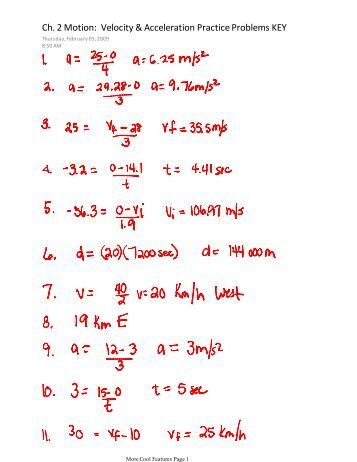 Ch. 2 Motion: Velocity & Acceleration Practice Problems KEY
Thursday, February 05, 2009
8:50 AM
1. a = 25-0/4 a = 6.25 m/s²
2. a = 29.28-0/3 a = 9.76 m/s²
3. 25 = vf - 28/3 vf = 35.5 m/s
4. -3.2 = 0-14.1/t t = 4.41 sec
5. -56.3 = 0-vi/1.9 vi = 106.97 m/s
6. d = (20)(7200 sec) d = 144 000 m
7. v = 40/2 v = 20 Km/h West
8. 19 Km E
9. a = 12-3/3 a = 3 m/s²
10. 3 = 15-0/t t = 5 sec
11. 30 = vf-10 vf = 25 km/h
More Cool Features Page 1